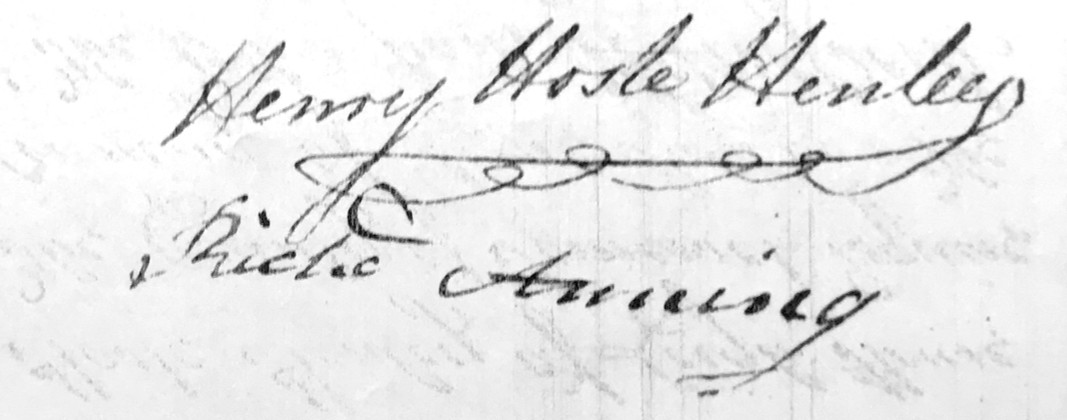 Henry Hoste Henley
Richd Anning